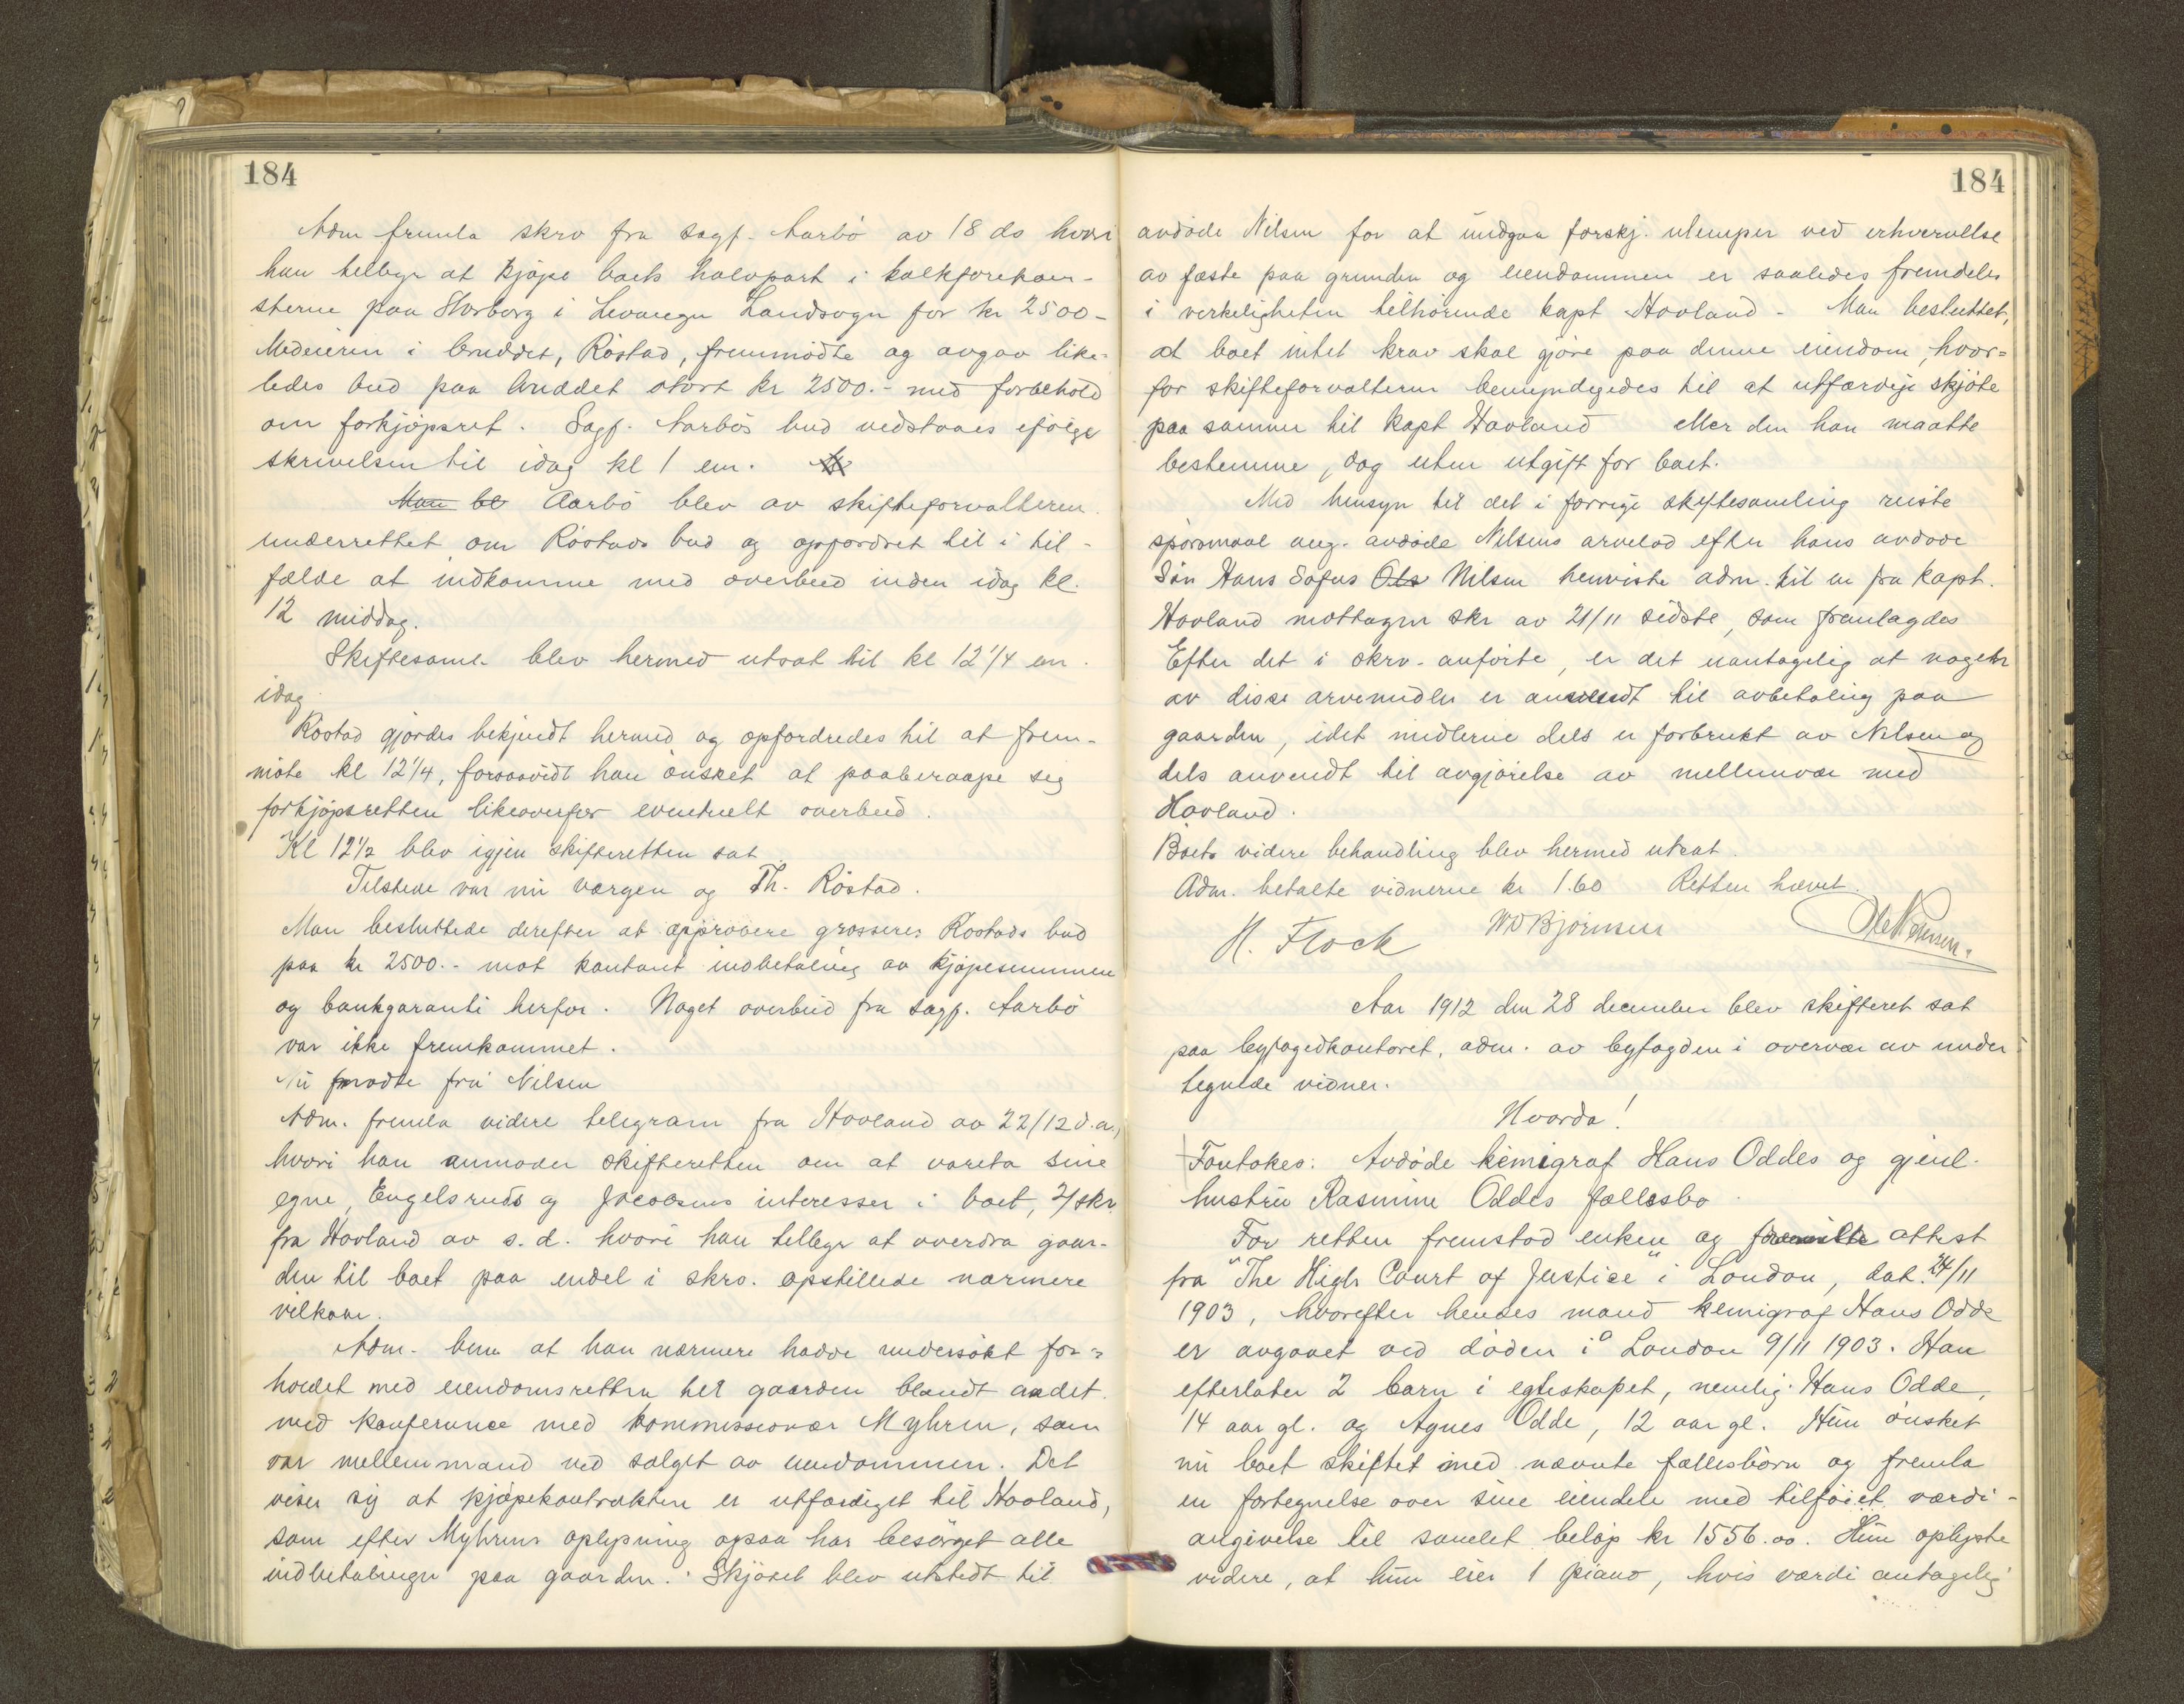 184
Adm fremla skrv fra sagf. Aarbö av 18 ds hvori
han tilbyr at kjøpe boets halvpart i kalkforekom-
sterne paa Storborg i Levanger Landsogn for kr 2500 -
Medeieren i bruddet, Röstad, fremmödte og avgav like-
ledes bud paa bruddet stort kr 2500.- med forbehold
om forkjøpsret. Sagf. Aarbös bud vedstaaes ifølge
skrivelsen til idag kl 1 em.
Man bl Aarbö blev av skifteforvalteren
underrettet om Röstads bud og opfordret til i til-
fælde at indkomme med overbud inden idag kl.
12 middag.
Skiftesaml. blev hermed utsat til kl 12 1/4 em.
idag
Röstad gjördes bekjendt hermed og opfordredes til at frem-
möte kl 12 1/4, forsaavidt han önsket at paaberaape sig
forkjøpsretten likeoverfor eventuelt overbud.
Kl 12 1/2 blev igjen skifteretten sat
Tilstede var nu værgen og Th. Röstad.
Man besluttede derefter at approbere grosserer Röstads bud
paa kr 2500.- mot kontant indbetaling av kjøpesummen
og bankgaranti herfor. Noget overbud fra sagf. Aarbö
var ikke fremkommet.
Nu mødte fru Nilsen
Adm. fremla videre telegram fra Hovland av 22/12 d.a.,
hvori han anmoder skifteretten om at vareta sine
egne, Engelsruds og Jacobsens interesser i boet, 2/ skr.
fra Hovland av s.d. hvori han tilbyr at overdra gaar-
den til boet paa endel i skrv. opstillede nærmere
vilkaar.
Adm. bem at han nærmere hadde undersøkt for-
holdet med eiendomsretten til gaarden blandt andet
ved konferance med kommissionær Myhren, som
var mellemmand ved salget av eiendommen. Det
viser sig at kjøpekontrakten er utfærdiget til Hovland,
som efter Myhrens oplysning ogsaa har besørget alle
indbetalinger paa gaarden. Skjötet blev utstedt til
184
avdöde Nilsen for at undgaa forskj. ulemper ved erhvervelse
av fæste paa grunden og eiendommen er saaledes fremdeles
i virkeligheten tilhörende kapt Hovland - Man besluttet,
at boet intet krav skal gjöre paa denne eiendom, hvor-
for skifteforvalteren bemyndigedes til at utfærdige skjöte
paa samme til kapt Hovland eller den han maatte
bestemme, dog uten utgift for boet.
Med hensyn til det i forrige skiftesamling reiste
spörsmaal ang. avdöde Nilsens arvelod efter hans avdöde
Sön Hans Sofus Ols Nilsen henviste adm. til en fra kapt.
Hovland mottagen skr av 21/11 sidste, som fremlagdes
Efter det i skrv. anförte, er det uantagelig at noget
av disse arvemidler er anvendt til avbetaling paa
gaarden, idet midlerne dels er forbrukt av Nilsen og
dels anvendt til avgjörelse av mellemvær med
Hovland.
Boets videre behandling blev hermed utsat.
Adm. betalte vidnerne kr 1.60 Retten hævet.
H. Flock WO Bjørnsen
Aar 1912 den 28 december blev skifteret sat
paa byfogedkontoret, adm. av byfogden i overvær av under
tegnede vidner.
Hvorda!
Foretokes: Avdöde kemigraf Hans Oddes og gjenl.
hustru Rasmine Oddes fællesbo.
For retten fremstod enken og attest
fra "The High Court of Justice" i London, dat. 24/11
1903, hvorefter hendes mand kemigraf Hans Odde
er avgaaet ved döden i London 9/11 1903. Han
efterlater 2 barn i egteskapet, nemlig: Hans Odde,
14 aar gl. og Agnes Odde, 12 aar gl. Hun önsket
nu boet skiftet med nævnte fællesbörn og fremla
en fortegnelse over sine eiendele med tilföiet værdi-
angivelse til samlet belöp kr 1556.00. Hun oplyste
videre, at hun eier 1 piano, hvis værdi antagelig